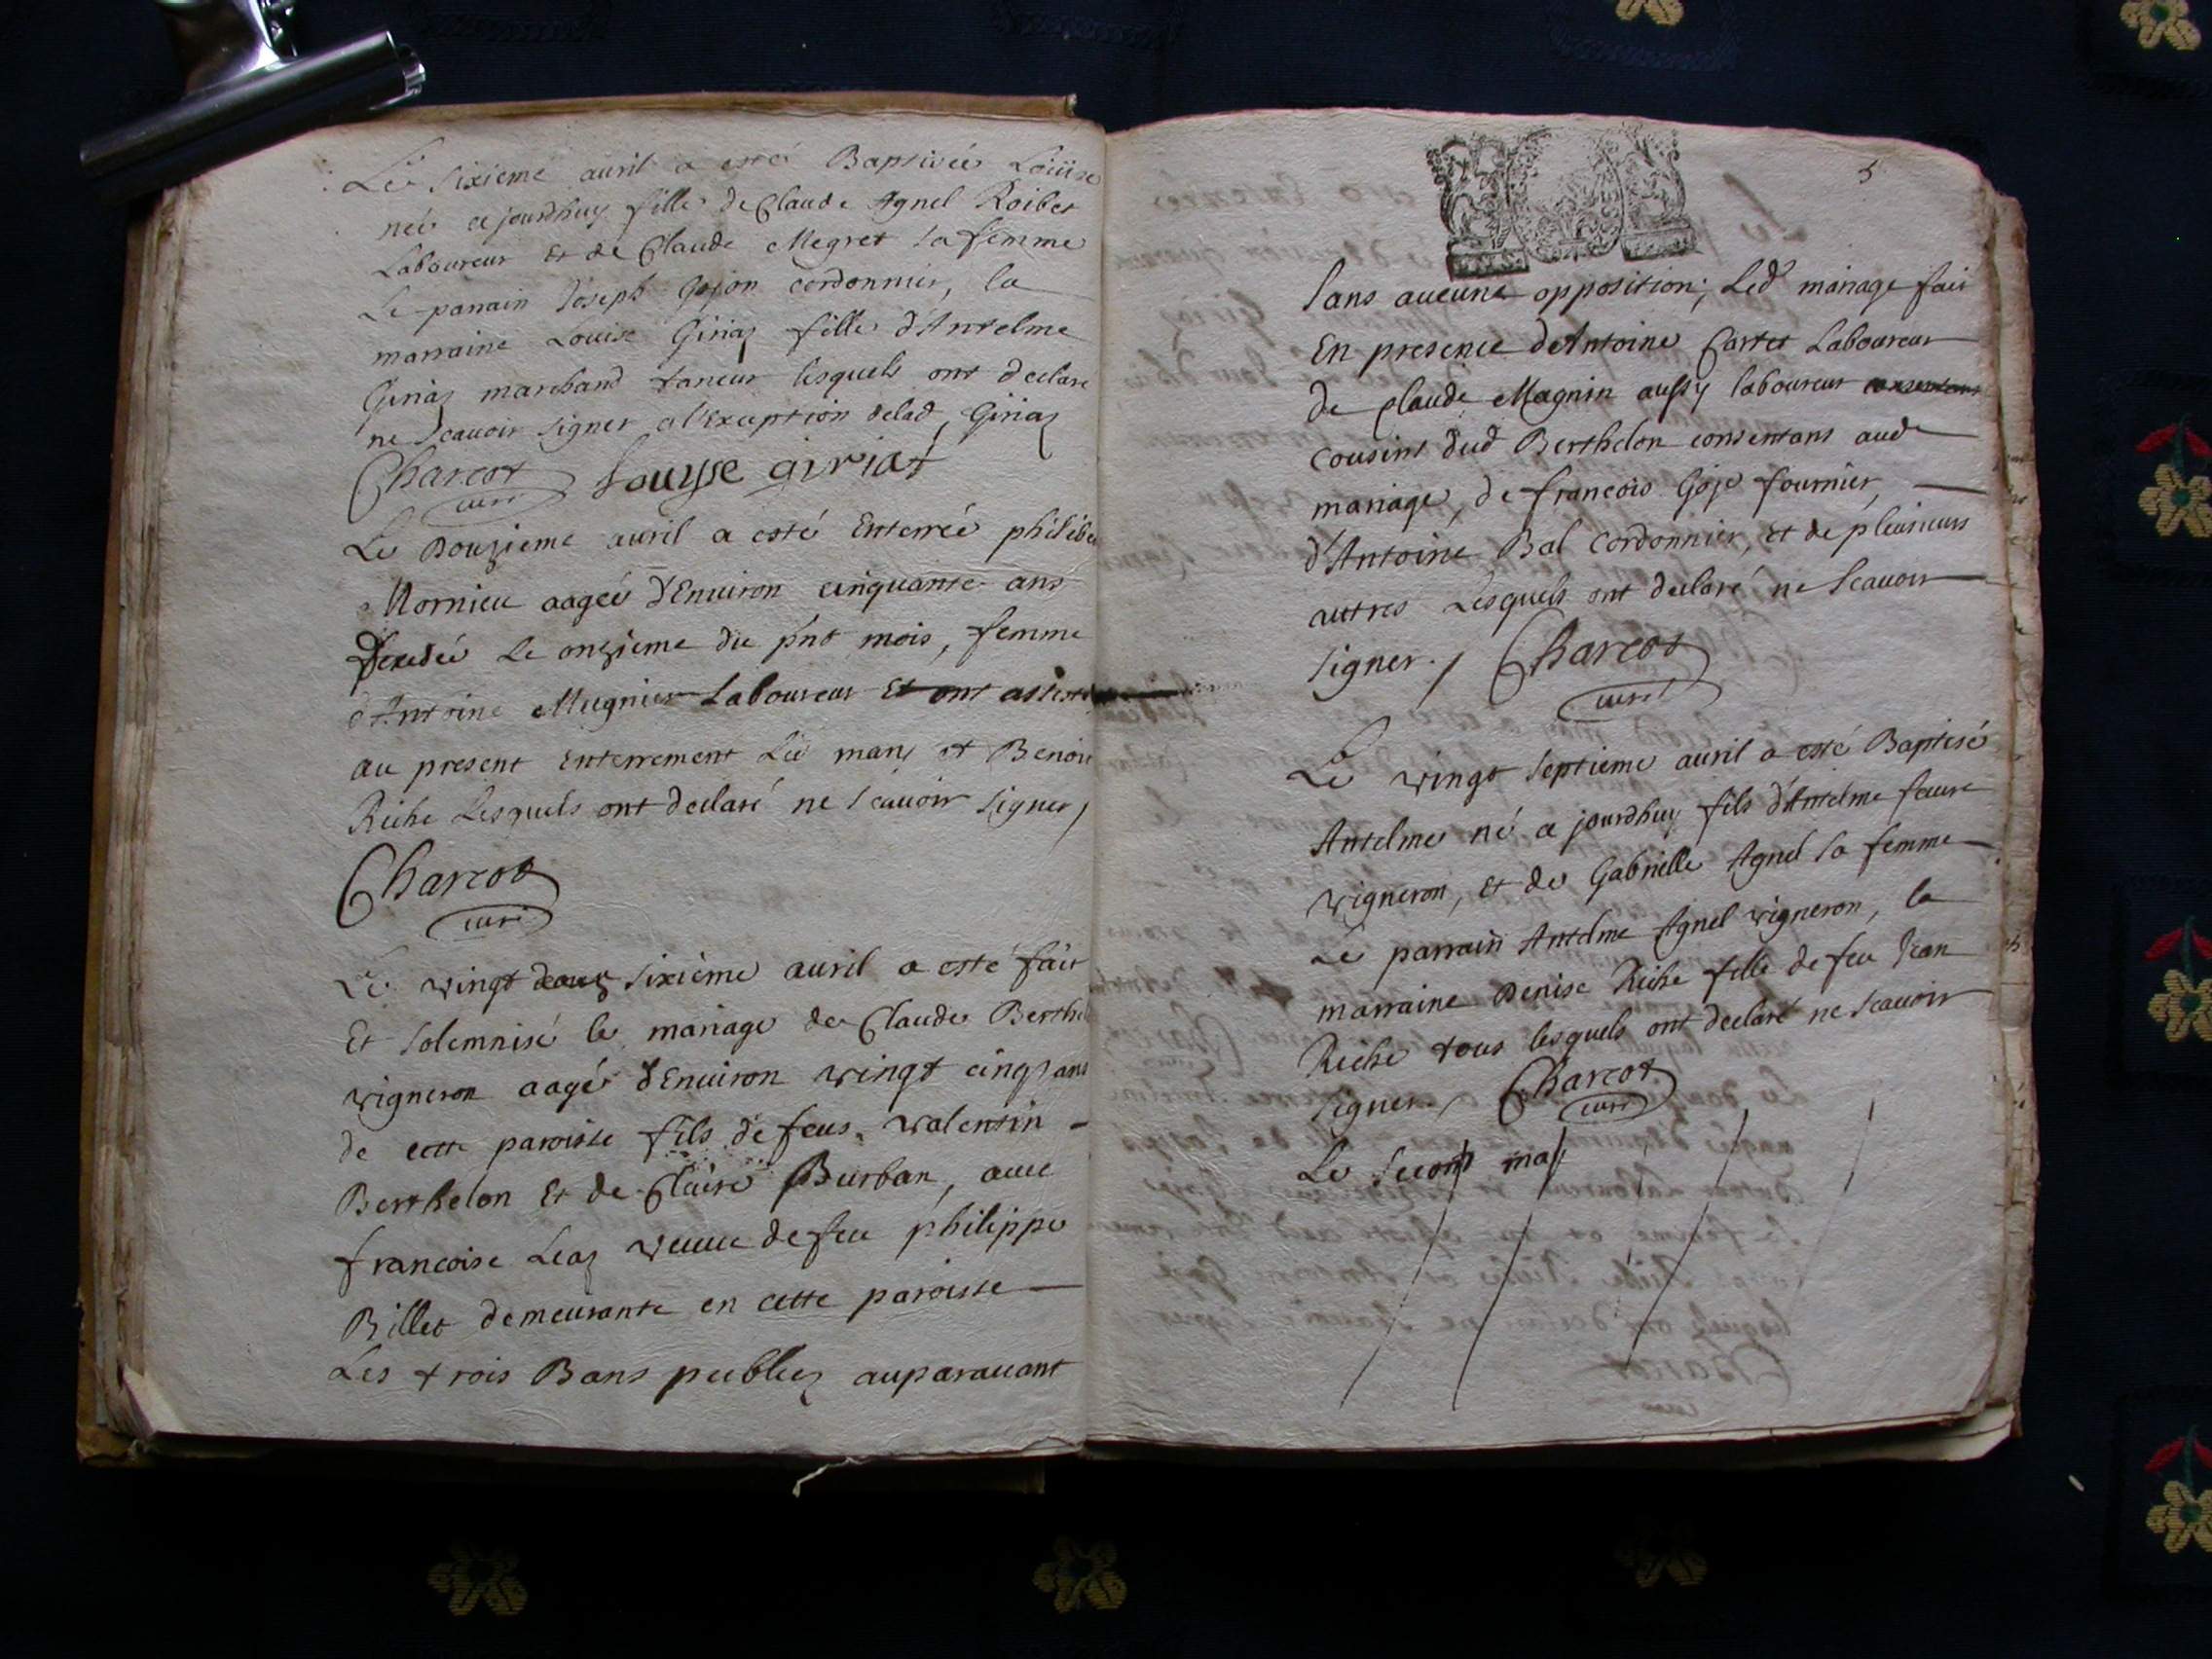 Le sixieme auril a esté Baptisée Loüise
née ce jourdhuy fille de Claude Agnel Roibet
Laboureur Et de Claude Megret sa femme
Le parrain Joseph Gojon cordonnier, la
marraine Louise Giriaz fille d'Antelme
Giriaz marchand taneur lesquels ont declare
ne scauoir signer a l'exception delad Giriaz
Charcot curé Louyse giriat
Le Douzieme auril a esté Enterrée philibe
Mornieu aagée d'Enuiron cinquante ans
Decedée Le onzieme du pnt mois, femme
d'Antoine Mugnier Laboureur Et ont assisté
au present Enterrement Led mary et Benoit
Riche Lesquels ont declaré ne scauoir signer,
Charcot
curé
Le vingt deux sixième auril a esté fait
Et solemnisé le mariage de Claude Berthe
vigneron aagé d'Enuiron vingt cinq ans
de cette paroisse fils de feus Valentin
Berthelon Et de Claire Burban, auec
francoise Leaz veuue de feu philippe
Billet demeurante en cette paroisse
Les trois Bans publiez auparauant
5
sans aucune opposition, Led mariage fait
En presence d'Antoine Cartet Laboureur
de Claude Magnin aussy laboureur consentans
cousins dud Berthelon consentans aud
mariage, de francois Goje fournier,
d'Antoine Bal Cordonnier, et de pleusieurs
autres Lesquels ont declaré ne scauoir
signer. / Charcot
curé
Le vingt septieme auril a esté Baptisé
Antelme né ce jourdhuy fils d'Antelme feure
vigneron, Et de Gabrielle Agnel sa femme
Le parrain Antelme Agnel vigneron, la
marraine Denise Riche fille de feu Jean
Riche tous lesquels ont declaré ne scauoir
signer. / Charcot
curé
Le second may